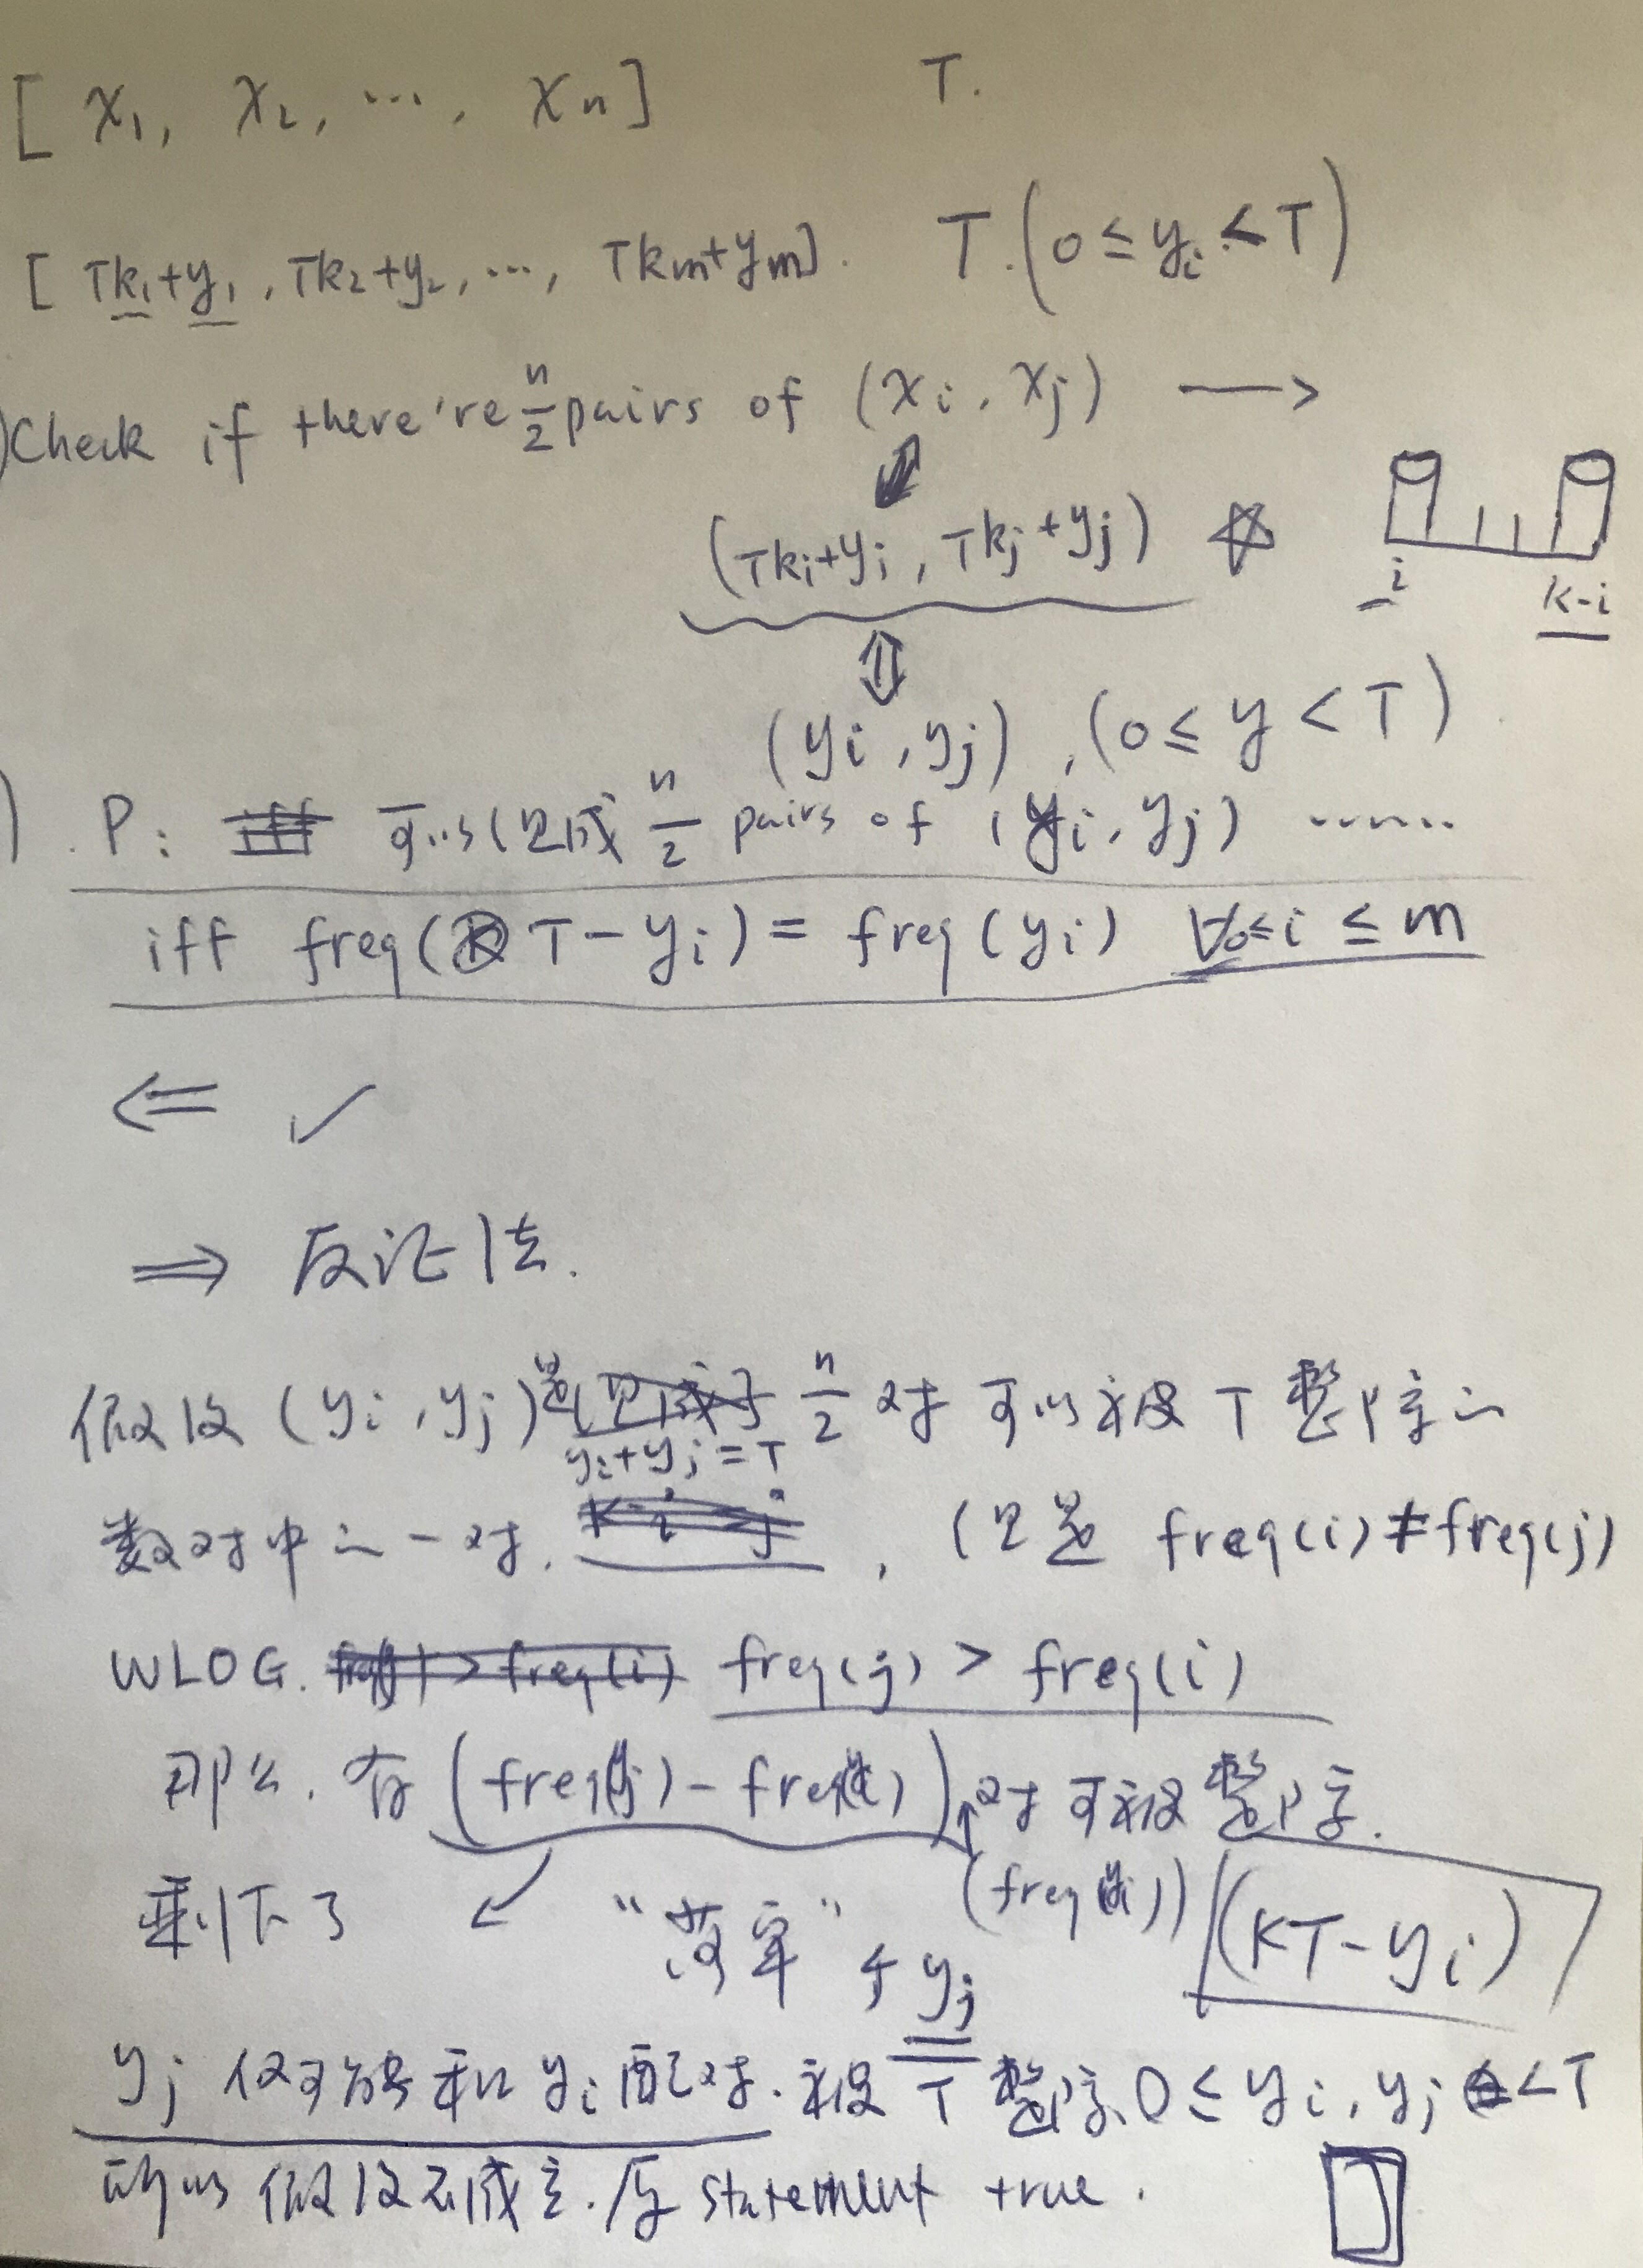 [ x₁, x₂, ..., xₙ ] T.
[ Tk₁+y₁, Tk₂+y₂, ..., Tkm+ym]. T.(0≤yᵢ<T)
)Check if there're n/2 pairs of (xᵢ, xⱼ) →
(Tkᵢ+yᵢ, Tkⱼ+yⱼ) ☆
i k-i
⇕
(yᵢ, yⱼ), (0≤y<T)
). P: 可以组成 n/2 pairs of (yᵢ, yⱼ) ......
iff freq(T-yᵢ) = freq(yᵢ) ∀0≤i≤m
⇐ ✓
⇒ 反证法.
假设 (yᵢ, yⱼ) 是 n/2 对可以被 T 整除的
数对中的一对. yᵢ+yⱼ=T, 但是 freq(i)≠freq(j)
WLOG. freq(j) > freq(i)
那么. 有 (freq(yⱼ)-freq(yᵢ)) 对可被整除.
(freq(yᵢ))
剩下了 ↙ "落单" 个 yⱼ (KT-yᵢ)
yⱼ 仅可能和 yᵢ 配对. 被 T 整除, 0≤yᵢ, yⱼ<T
所以假设不成立. 原 statement true. □